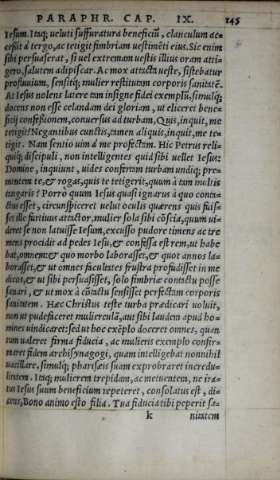 PARAPHR. CAP. IX. 145
Iesum. Itaq; ueluti suffuratura beneficiū, clanculum ac-
cessit à tergo, ac tetigit fimbriam uestimēti eius. Sic enim
sibi persuaserat, si uel extremam uestis illius oram atti-
gero, salutem adipiscar. Ac mox attacta ueste, sistebatur
profluuium, sensitq; mulier restitutam corporis sanitatē.
At Iesus nolens latere tam insigne fidei exemplū, simulq;
docens non esse celandam dei gloriam, ut eliceret bene-
ficij confessionem, conuersus ad turbam, Quis, inquit, me
tetigit? Negantibus cunctis, tamen aliquis, inquit, me te-
tigit. Nam sentio uim à me profectam. Hic Petrus reli-
quiq; discipuli, non intelligentes quid sibi uellet Iesus:
Domine, inquiunt, uides confertam turbam undiq; pre-
mentem te, & rogas, quis te tetigerit, quum à tam multis
tangaris? Porrò quum Iesus quasi ignarus à quo contactus
esset, circunspiceret uelut oculis quærens quis fuis-
set ille furtiuus attactor, mulier sola sibi cōscia, quum ui-
deret se non latuisse Iesum, excusso pudore timens ac tre
mens procidit ad pedes Iesu, & confessa est rem, ut habe
bat, omnem: & quo morbo laborasset, & quot annos la-
borasset, & ut omnes facultates frustra profudisset in me
dicos, & ut sibi persuasisset, solo fimbriæ contactu posse
sanari, & ut mox à cōtactu sensisset perfectam corporis
sanitatem. Hæc Christus teste turba prædicari uoluit,
non ut pudefaceret mulierculā, aut sibi laudem apud ho-
mines uindicaret: sed ut hoc exēplo doceret omnes, quan
tum ualeret firma fiducia, ac mulieris exemplo confir-
maret fidem archisynagogi, quam intelligebat nonnihil
uacillare, simulq; pharisæis suam exprobraret incredu-
litatem. Itaq; mulierem trepidam, ac metuentem, ne ira-
tus Iesus suum beneficium repeteret, consolatus est, di-
cens, Bono animo esto filia. Tua fiducia tibi peperit sa-
k nitatem